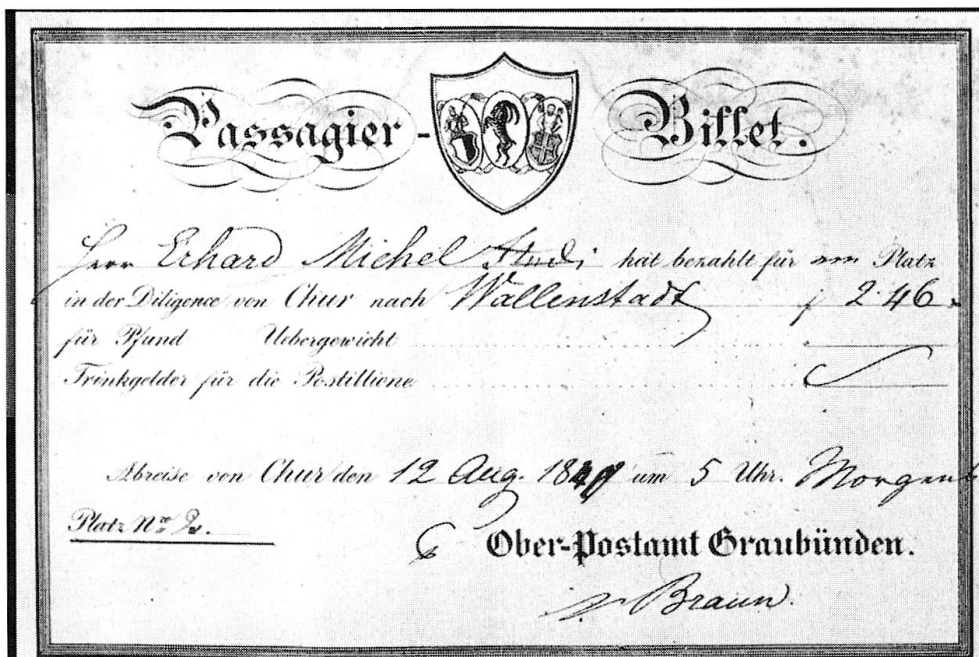 Passagier- Billet.
Herr Erhard Michel hat bezahlt für Platz
in der Diligence von Chur nach Wallenstadt f 2.46
für Pfund Uebergewicht
Trinkgelder für die Postillione
Abreise von Chur den 12 Aug. 18 um 5 Uhr. Morgens
Platz No 2.
Ober-Postamt Graubünden.
Braun.